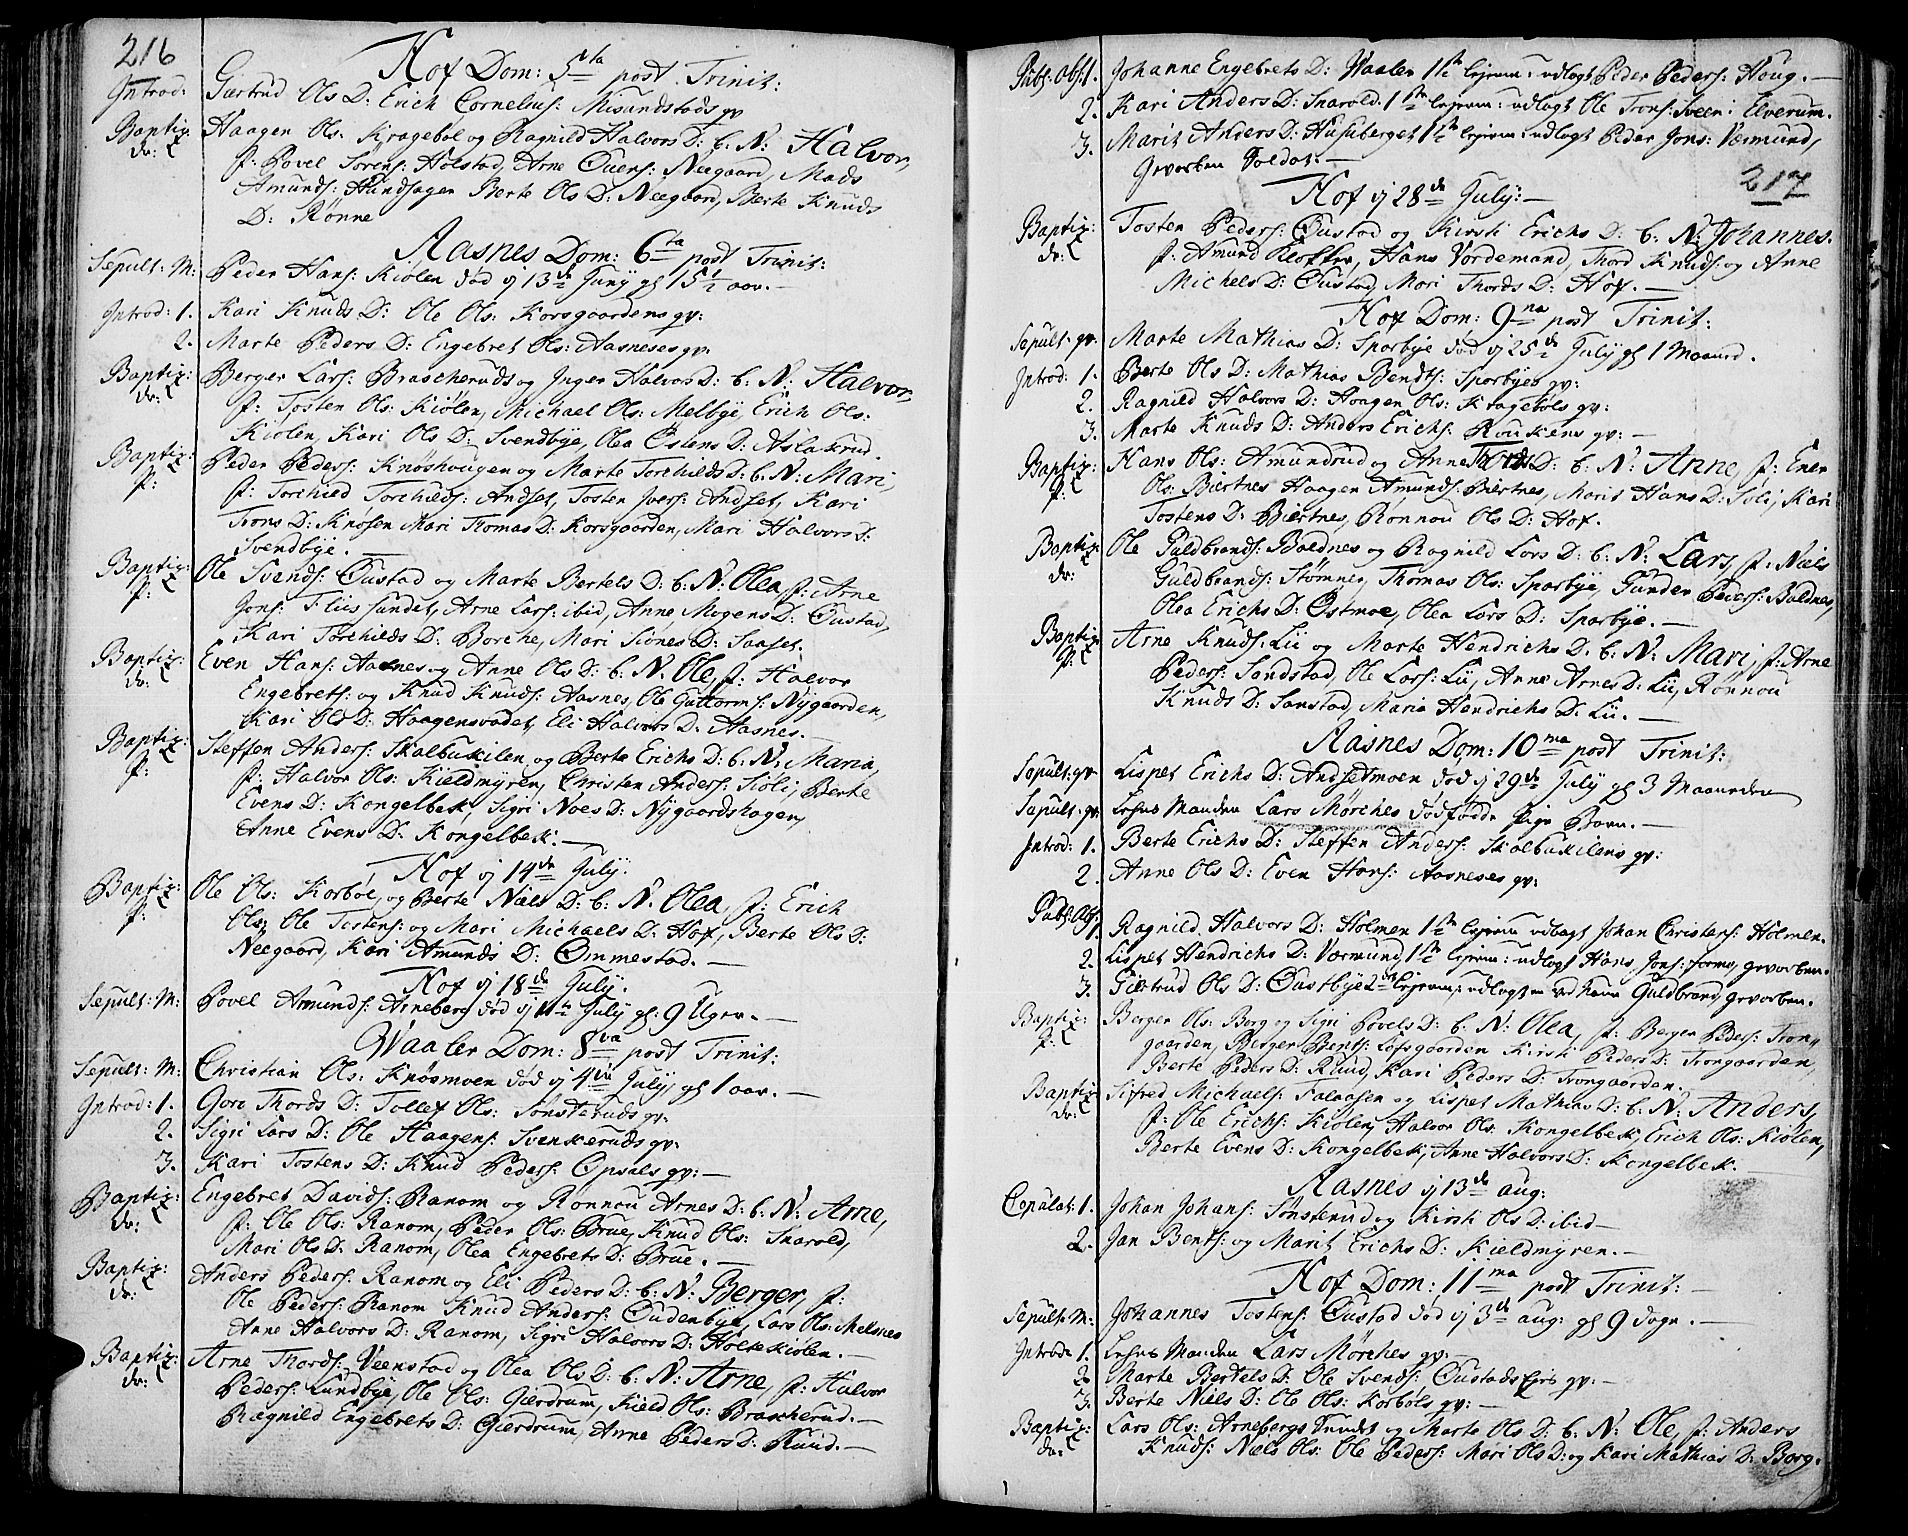 216
Hof Dom: 5ta post Trinit:
Introd: Giertrud Ols D: Erich Cornelius: Misundstads gv
Baptiz: Haagen Ols: Kragebøl og Ragnild Halvors D: b: N: Halvor,
dr: f: Povel Sørens: Holstad, Arne Ouens: Neegaard, Mads
Amunds: Hundsagen Berte Ols D: Neegaard, Berte Knuds
D: Rønne
Aasnes Dom: 6ta post Trinit:
Sepult: M: Peder Hans: Kiølen død ij 13de Juny gl 15 1/2 aar.
Introd: 1. Kari Knuds D: Ole Ols: Korsgaardens gv:
2. Marte Peders D: Engebret Ols: Aasneses gv:
Baptiz: Berger Lars: Brascheruds og Inger Halvors D: b: N: Halvor,
dr: f: Tosten Ols: Kiølen, Michael Ols: Melbye, Erich Ols:
Kiølen, Kari Ols D: Svendbye, Olea Ostens D: Aslakrud.
Baptiz: Peder Peders: Knøshougen og Marte Torchilds D: b: N: Mari,
p: f: Torchild Torchilds: Andset, Tosten Ivers: Andset, Kari
Trons D: Knøsen Mari Thomas D: Korsgaarden, Mari Halvors D:
Svendbye.
Baptiz: Ole Svends: Oustad og Marte Bertels D: b: N: Olea, f: Arne
p: Jons: Fliissundet, Arne Lars: ibid, Anne Mogens D: Oustad,
Kari Torchilds D: Borche, Mari Siønes D: Saaset.
Baptiz: Even Hans: Aasnes og Anne Ols D: b: N: Ole, f: Halvor
dr: Engebrets: og Knud Knuds: Aasnes, Ole Guttorms: Nygaarden,
Kari Ols D: Haagensvadet, Eli Halvors D: Aasnes.
Baptiz: Steffen Anders: Skalbukilen og Berte Erichs D: b: N: Maria,
p: f: Halvor Ols: Kieldmyren, Christen Anders: Siøli, Berte
Evens D: Kongelbek, Sigri Noes D: Nygaardshagen,
Anne Evens D: Kongelbek.
Hof ij 14de July.
Baptiz: Ole Ols: Korbøl og Berte Niels D: b: N: Olea, f: Erich
p: Ols: Ole Tostens: og Mari Michaels D: Hof, Berte Ols D:
Neegaard, Kari Amunds D: Ommestad.
Hof ij 18de July.
Sepult: M: Povel Amunds: Arneberg død ij 11te July gl: 9 Uger.
Waaler Dom: 8va post Trinit:
Sepult: M: Christian Ols: Knøsmoen død ij 4de July gl 1 aar.
Introd: 1. Gøri Thords D: Tollef Ols: Sønsteruds gv:
2. Sigri Lars D: Ole Haagens: Svenkeruds gv:
3. Kari Tostens D: Knud Peders: Opsals gv:
Baptiz: Engebret Davids: Ranom og Rønnou Arnes D: b: N: Arne,
dr: f: Ole Ols: Ranom, Peder Ols: Brue, Knud Ols: Snarold,
Mari Ols D: Ranom, Olea Engebrets D: Brue.
Baptiz: Anders Peders: Ranom og Eli Peders D: b: N: Berger, f:
dr: Ole Peders: Ranom Knud Anders: Oudenbye, Lars Ols: Melsnes
Anne Halvors D: Ranom, Sigri Halvors D: Holtekiølen.
Baptiz: Arne Thords: Veenstad og Olea Ols D: b: N: Arne, f: Halvor
dr: Peders: Lundbye, Ole Ols: Gierdrum, Kield Ols: Brascherud.
Ragnild Engebrets D: Gierdrum, Anne Peders D: Ruud.
Publ: Abs: 1. Johanne Engebrets D: Waaler 1ste lejerm: udlagt Peder Peders: Houg.
2. Kari Anders D: Snarold 1ste lejerm: udlagt Ole Trons: Sveen i Elverum.
3. Marit Anders D: Husuberget 1ste lejerm: udlagt Peder Jons: Vermund,
gevorben Soldat.
217
Hof ij 28de July:
Baptiz: Tosten Peders: Oustad og Kirsti Erichs D: b: N: Johannes.
dr: f: Amund Klokker, Hans Vordemand, Thord Knuds: og Anne
Michels D: Oustad, Mari Thords D: Hof.
Hof Dom: 9na post Trinit:
Sepult: gv: Marte Mathias D: Sporbye død ij 25de July gl 1 Maaned.
Introd: 1. Berte Ols D: Mathias Bendts: Sporbyes gv:
2. Ragnild Halvors D: Haagen Ols: Kragebøls gv:
3. Marte Knuds D: Anders Erichs: Roukens gv:
Baptiz: Hans Ols: Amundrud og Anne Tords D: b: N: Anne, f: Ener
p: Ols: Biertnes Haagen Amunds: Biertnes, Marit Hans D: Søli, Kari
Tostens D: Biertnes, Rønnou Ols D: Hof.
Baptiz: Ole Guldbrands: Baldnes og Ragnild Lars D: b: N: Lars, f: Niels
dr: Guldbrands: Stømne, Thomas Ols: Sporbye, Gunder Peders: Baldnes,
Olea Erichs D: Ostmoe, Olea Lars D: Sporbye.
Baptiz: Arne Knuds: Lii og Marte Hendrichs D: b: N: Mari, f: Arne
p: Peders: Sandstad, Ole Lars: Lii, Anne Arnes D: Lii, Rønnou
Knuds D: Sanstad, Maria Hendrichs D: Lii.
Aasnes Dom: 10ma post Trinit:
Sepult: gv Lispet Erichs D: Andsetmoen død ij 29de July gl 3 Maaneder
Sepult: gv: Manden Lars Mørches dødfødde Pige Barn.
Introd: 1. Berte Erichs D: Steffen Anders: Skalbukilens gv:
2. Anne Ols D: Even Hans: Aasneses gv:
Publ: Abs:
1. Ragnild Halvors D: Holmen 1ste lejerm udlagt Johan Christens: Holmen.
2. Lispet Hendrichs D: Vermund 1ste lejerm: udlagt Hans Jons: gevorben.
3. Giertrud Ols D: Oustbye 2de lejerm: udlagt Guldbrand gevorben.
Baptiz: Berger Ols: Borg og Sigri Povels D: b: N: Olea, f: Berger Peders: Tron-
p: gaarden, Berger Bents: Løfsgaarden Kirsti Peders D: Trongaarden,
Berte Peders D: Ruud, Kari Peders D: Trongaarden.
Baptiz: Sifred Michaels: Falaasen og Lispet Mathias D: b: N: Anders,
dr: f: Ole Erichs: Kiølen, Halvor Ols: Kongelbek, Erich Ols: Kiølen,
Berte Evens D: Kongelbek, Anne Halvors D: Kongelbek.
Aasnes ij 13de aug:
Copulat: 1. Johan Johans: Sønsterud og Kirsti Ols D: ibid
2. Jan Bents: og Marit Erichs D: Kieldmyren.
Hof Dom: 11ma post Trinit:
Sepult: M: Johannes Tostens: Oustad død ij 3de aug: gl 9 Dage.
Introd: 1. Manden Lars Mørches gv:
2. Marte Bertels D: Ole Svends: Oustads gv:
3. Berte Niels D: Ole Ols: Korbøls gv:
Baptiz: Lars Ols: Arnebergs og Marte Ols D: b: N: Ole, f: Anders
dr: Knuds: Niels Ols: Ole Peders: Mari Ols D: og Kari Mathias D: Borg.